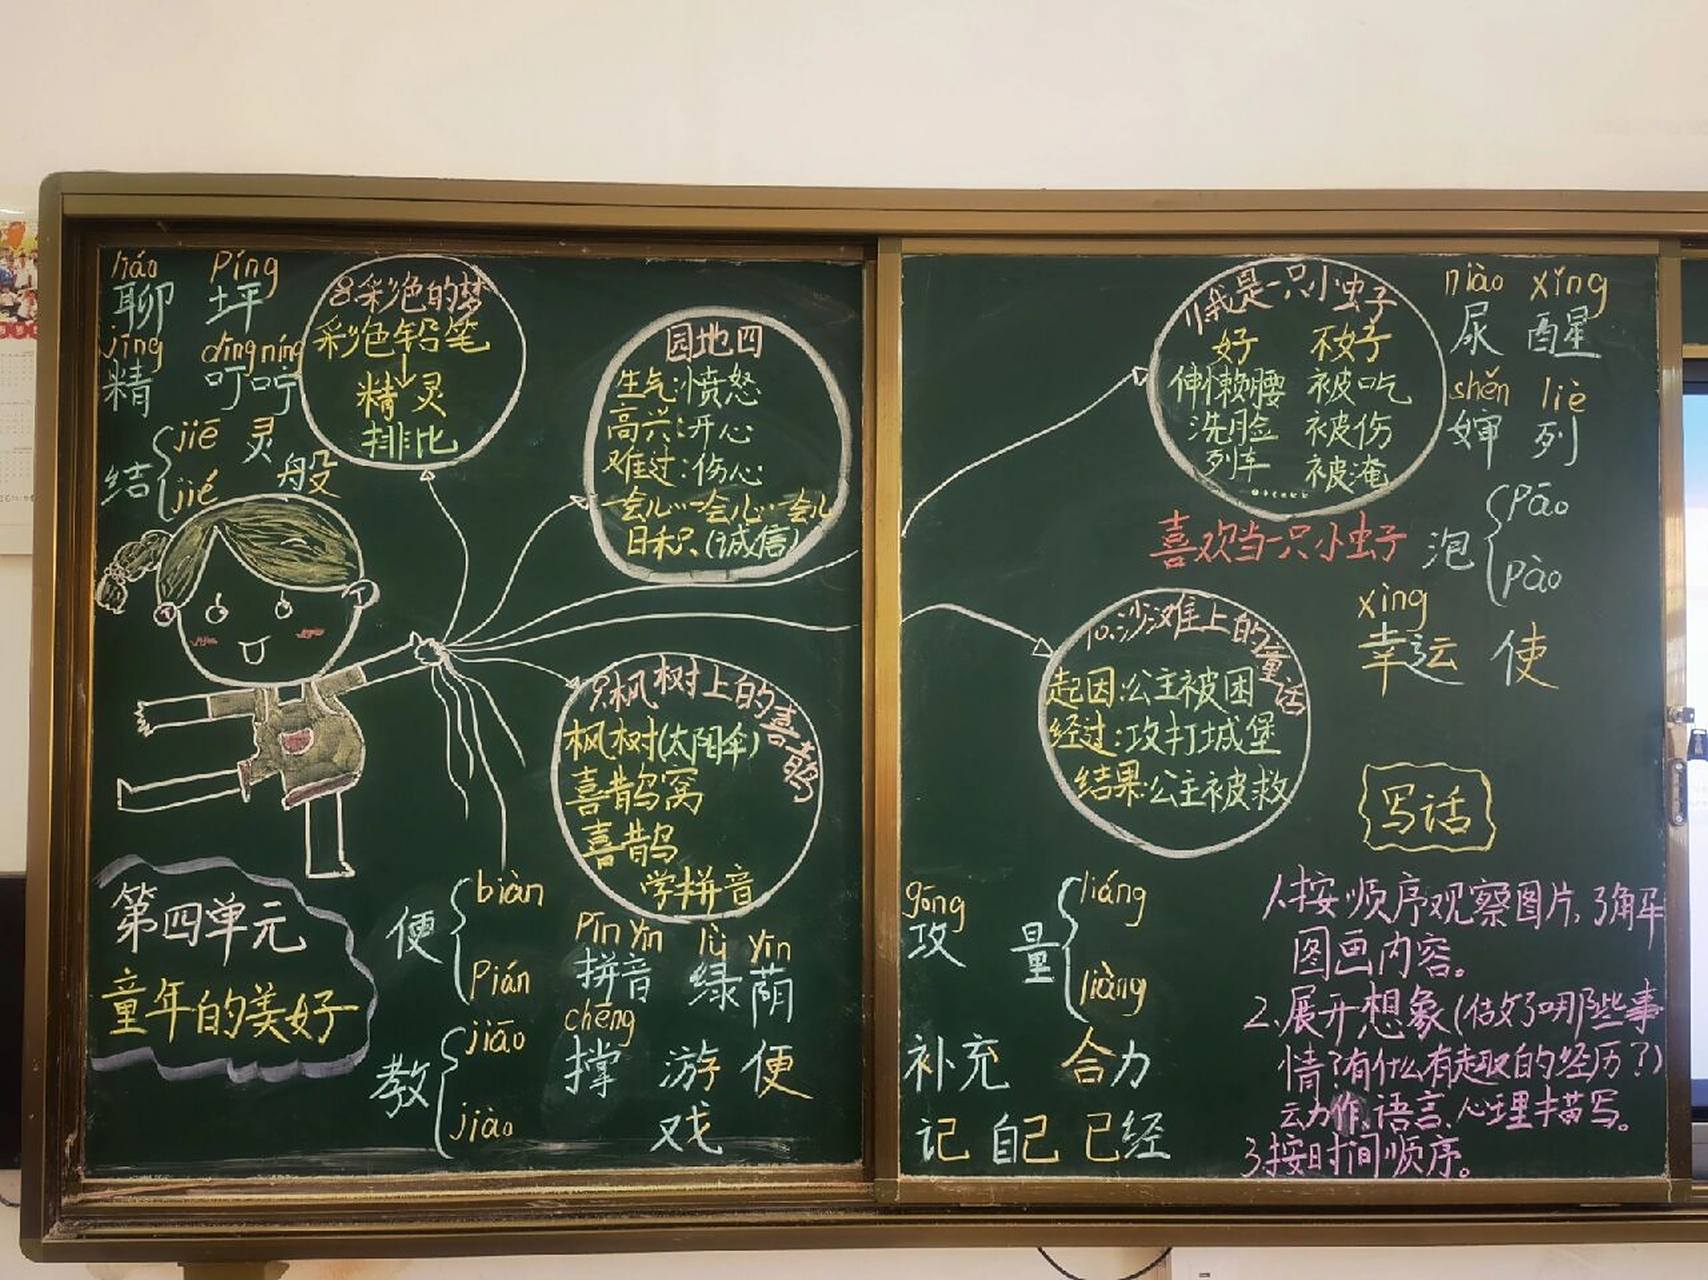 liáo píng
聊 坪
jīng dīng níng
精 叮咛
结 jiē jié
灵
般
8.彩色的梦
彩色铅笔
↓
精灵
排比
园地四
生气:愤怒
高兴:开心
难过:伤心
一会儿…一会儿…一会儿
日积(诚信)
9.枫树上的喜鹊
枫树(太阳伞)
喜鹊窝
喜鹊
学拼音
第四单元
童年的美好
便 biàn pián
教 jiāo jiào
pīn yīn lǜ yīn
拼音 绿荫
chēng
撑 游 便
戏
11.我是一只小虫子
好 不好
伸懒腰 被吃
洗脸 被伤
列车 被淹
……
喜欢当一只小虫子
niào xǐng
尿 醒
shěn liè
婶 列
泡 pāo pào
xìng
幸运 使
10.沙滩上的童话
起因:公主被困
经过:攻打城堡
结果:公主被救
gōng
攻
量 liáng liàng
补充 合力
记 自己 已经
写话
1.按顺序观察图片,了解
图画内容。
2.展开想象(做了哪些事
情?有什么有趣的经历?)
动作、语言、心理描写。
3.按时间顺序。